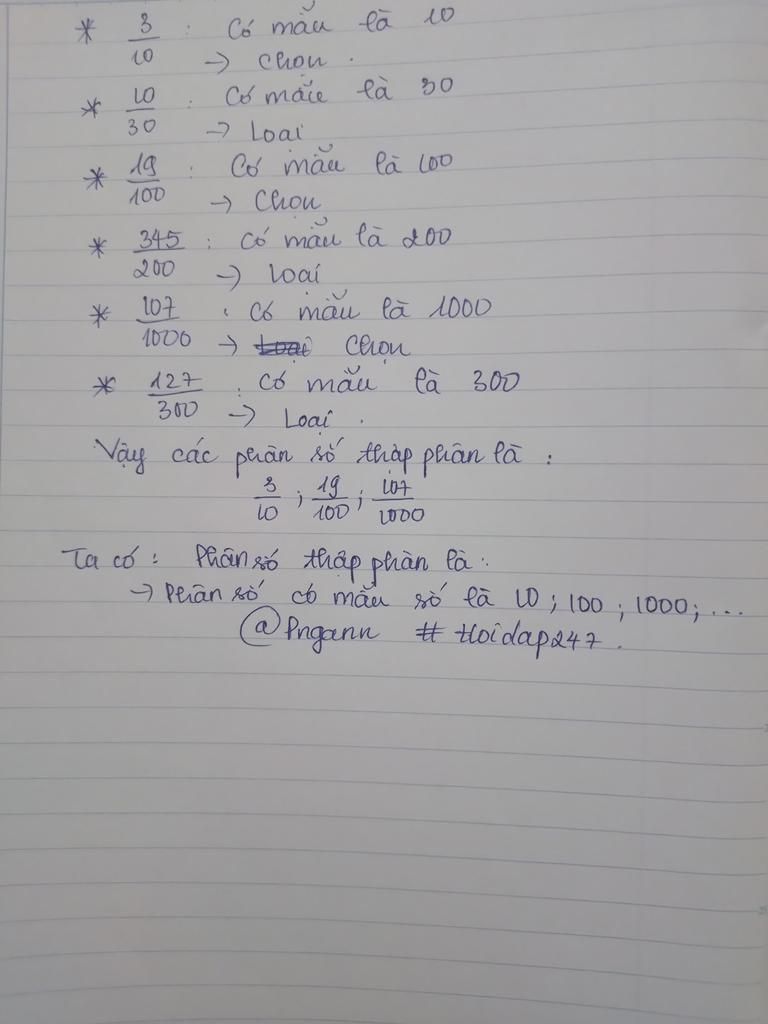 * 3/10 : Có mẫu là 10
→ Chọn .
* 10/30 : Có mẫu là 30
→ Loại
* 19/100 : Có mẫu là 100
→ Chọn
* 345/200 : Có mẫu là 200
→ Loại
* 107/1000 : Có mẫu là 1000
→ Loại Chọn
* 127/300 : Có mẫu là 300
→ Loại .
Vậy các phân số thập phân là :
3/10 ; 19/100 ; 107/1000
Ta có : Phân số thập phân là :
→ Phân số có mẫu số là 10 ; 100 ; 1000 ; ...
@Pngann # Hoidap247 .